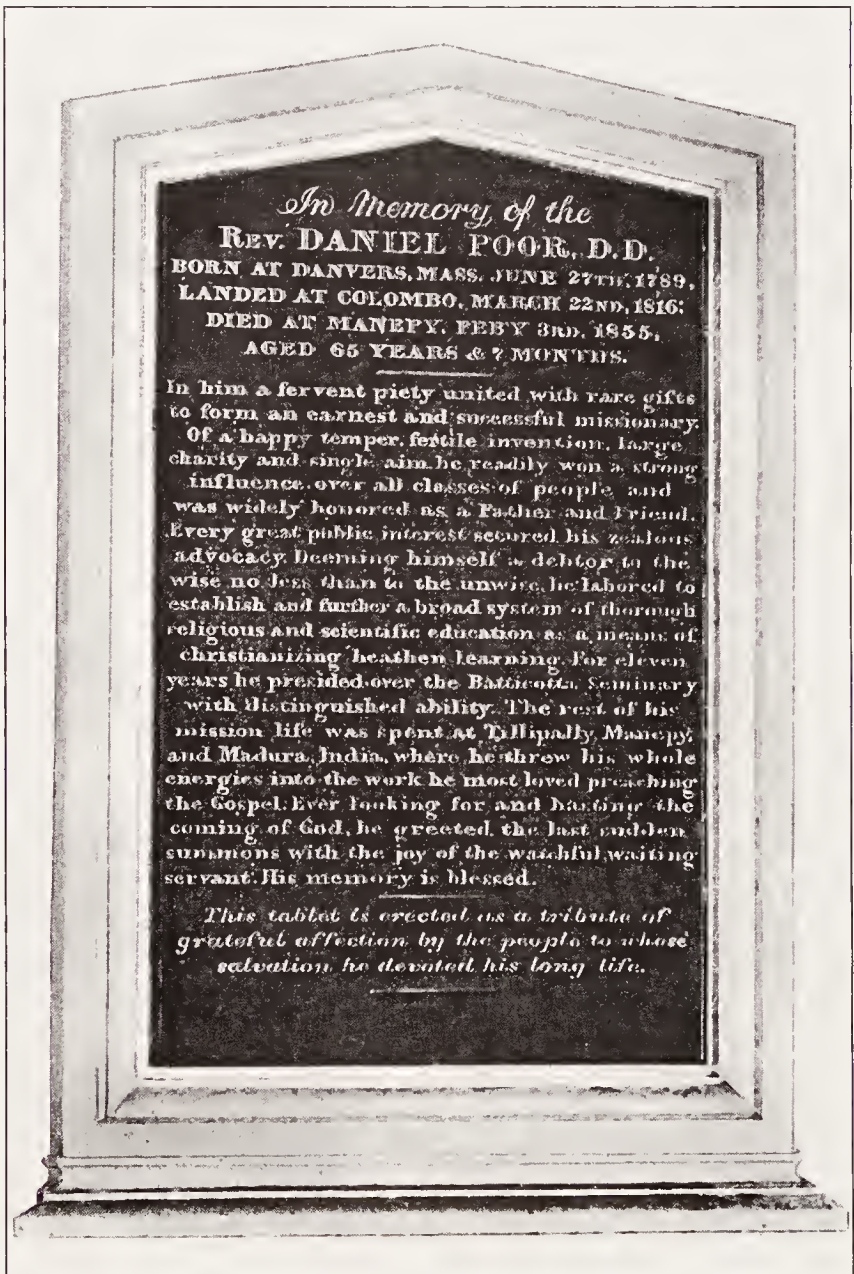 In Memory of the
REV. DANIEL POOR, D.D.
BORN AT DANVERS, MASS. JUNE 27TH, 1789,
LANDED AT COLOMBO, MARCH 22ND, 1816;
DIED AT MANEPY, FEBY 3RD, 1855,
AGED 65 YEARS & 7 MONTHS.
In him a fervent piety united with rare gifts
to form an earnest and successful missionary.
Of a happy temper, fertile invention, large
charity and single aim, he readily won a strong
influence over all classes of people and
was widely honored as a Father and Friend.
Every great public interest secured his zealous
advocacy. Deeming himself a debtor to the
wise no less than to the unwise, he labored to
establish and further a broad system of thorough
religious and scientific education as a means of
christianizing heathen learning. For eleven
years he presided over the Batticotta Seminary
with distinguished ability. The rest of his
mission life was spent at Tillipally, Manepy,
and Madura, India, where he threw his whole
energies into the work he most loved preaching
the Gospel. Ever looking for and hasting the
coming of God, he greeted the last sudden
summons with the joy of the watchful, waiting
servant. His memory is blessed.
This tablet is erected as a tribute of
grateful affection by the people to whose
salvation he devoted his long life.